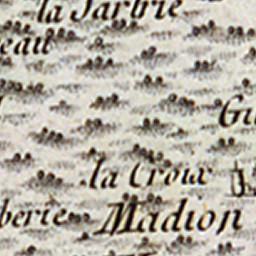 la Jarrie
eau
Gu
la Croix
berie Madion